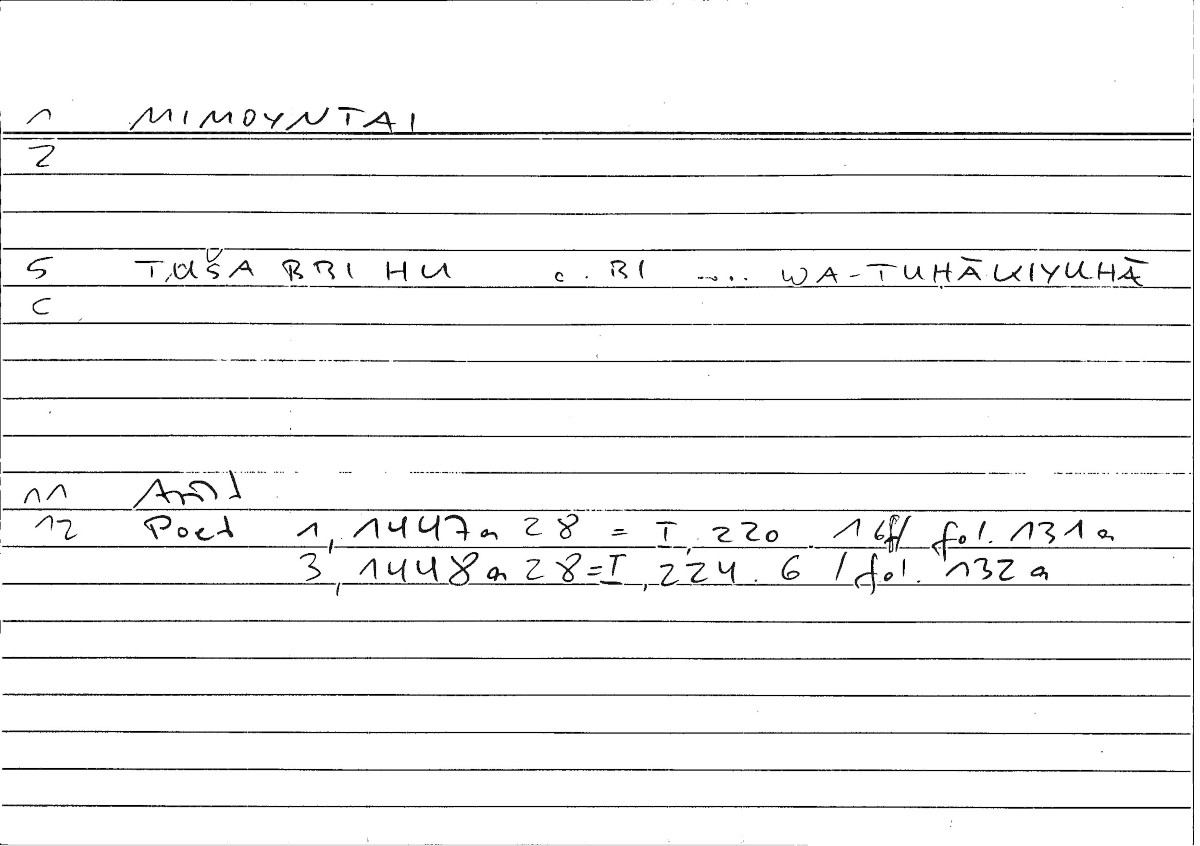 1 MIMOYNTAI
2
5 TUŠABBIHU c. BI .... WA-TUḤĀKIYUHĀ
C
11 Arist
12 Poet 1, 1447a 28 = I, 220. 16ff/ fol. 131a
3, 1448a 28 = I, 224. 6 / fol. 132a